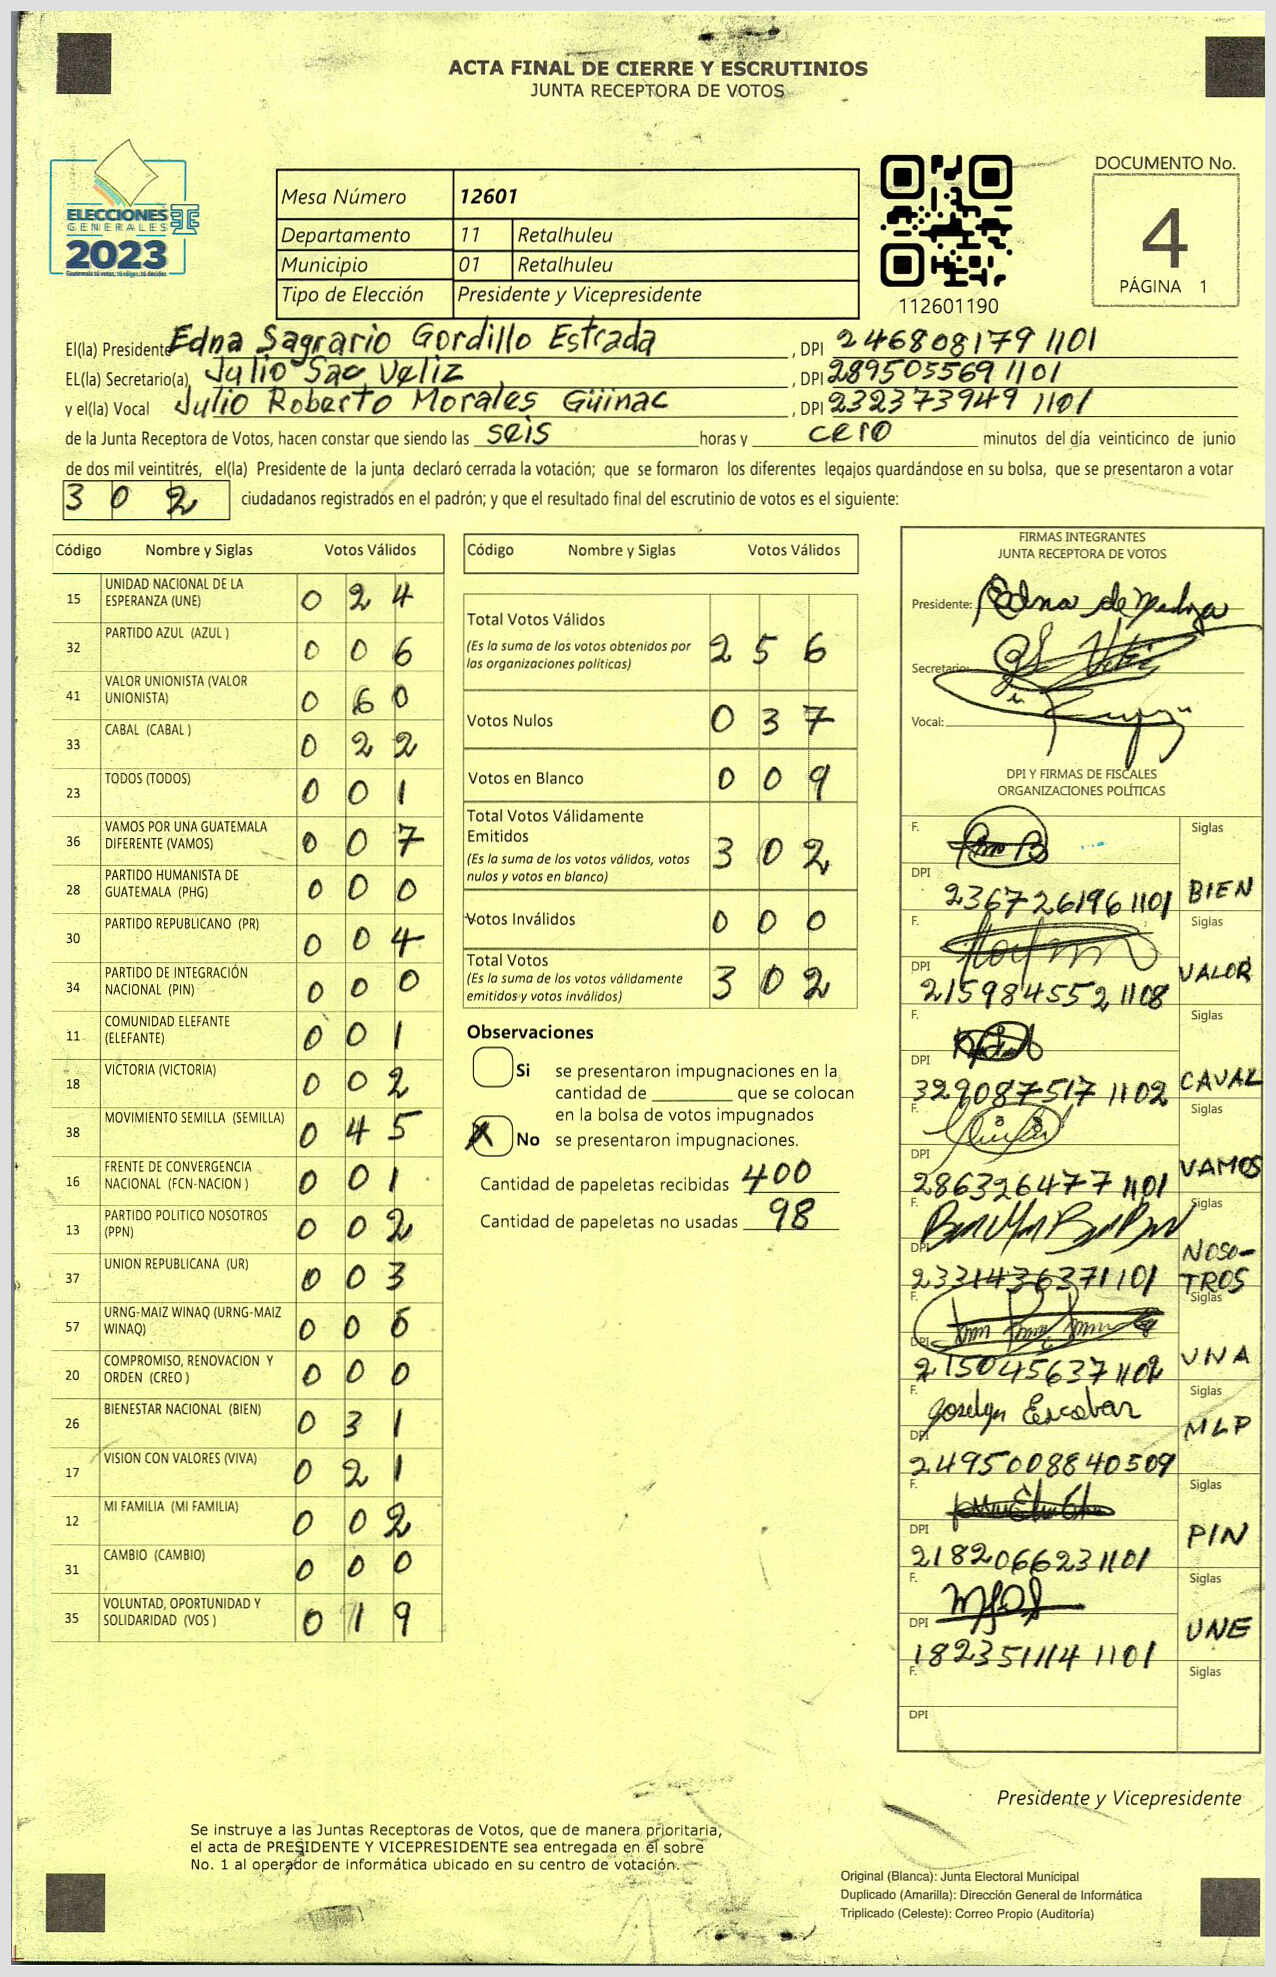 ACTA FINAL DE CIERRE Y ESCRUTINIOS
JUNTA RECEPTORA DE VOTOS
ELECCIONES
GENERALES
2023
Guatemala tú votas, tú eliges, tú decides
Mesa Número 12601
Departamento 11 Retalhuleu
Municipio 01 Retalhuleu
Tipo de Elección Presidente y Vicepresidente
112601190
DOCUMENTO No.
4
PÁGINA 1
El(la) Presidente Edna Sagrario Gordillo Estrada , DPI 246808179 1101
EL(la) Secretario(a) Julio Sac Veliz , DPI 289505569 1101
y el(la) Vocal Julio Roberto Morales Güinac , DPI 232373949 1101
de la Junta Receptora de Votos, hacen constar que siendo las seis horas y cero minutos del día veinticinco de junio
de dos mil veintitrés, el(la) Presidente de la junta declaró cerrada la votación; que se formaron los diferentes legajos guardándose en su bolsa, que se presentaron a votar
302 ciudadanos registrados en el padrón; y que el resultado final del escrutinio de votos es el siguiente:
Código Nombre y Siglas Votos Válidos
15 UNIDAD NACIONAL DE LA ESPERANZA (UNE) 024
32 PARTIDO AZUL (AZUL ) 006
41 VALOR UNIONISTA (VALOR UNIONISTA) 060
33 CABAL (CABAL ) 022
23 TODOS (TODOS) 001
36 VAMOS POR UNA GUATEMALA DIFERENTE (VAMOS) 007
28 PARTIDO HUMANISTA DE GUATEMALA (PHG) 000
30 PARTIDO REPUBLICANO (PR) 004
34 PARTIDO DE INTEGRACIÓN NACIONAL (PIN) 000
11 COMUNIDAD ELEFANTE (ELEFANTE) 001
18 VICTORIA (VICTORIA) 002
38 MOVIMIENTO SEMILLA (SEMILLA) 045
16 FRENTE DE CONVERGENCIA NACIONAL (FCN-NACION ) 001
13 PARTIDO POLITICO NOSOTROS (PPN) 002
37 UNION REPUBLICANA (UR) 003
57 URNG-MAIZ WINAQ (URNG-MAIZ WINAQ) 00
20 COMPROMISO, RENOVACION Y ORDEN (CREO ) 000
26 BIENESTAR NACIONAL (BIEN) 031
17 VISION CON VALORES (VIVA) 021
12 MI FAMILIA (MI FAMILIA) 002
31 CAMBIO (CAMBIO) 000
35 VOLUNTAD, OPORTUNIDAD Y SOLIDARIDAD (VOS ) 019
Código Nombre y Siglas Votos Válidos
Total Votos Válidos 256
(Es la suma de los votos obtenidos por
las organizaciones políticas)
Votos Nulos 037
Votos en Blanco 009
Total Votos Válidamente
Emitidos 302
(Es la suma de los votos válidos, votos
nulos y votos en blanco)
Votos Inválidos 000
Total Votos 302
(Es la suma de los votos válidamente
emitidos y votos inválidos)
Observaciones
Si se presentaron impugnaciones en la
cantidad de ________ que se colocan
en la bolsa de votos impugnados
X No se presentaron impugnaciones.
Cantidad de papeletas recibidas 400
Cantidad de papeletas no usadas 98
FIRMAS INTEGRANTES
JUNTA RECEPTORA DE VOTOS
Presidente: Edna de
Secretario:
Vocal:
DPI Y FIRMAS DE FISCALES
ORGANIZACIONES POLÍTICAS
F. Siglas
DPI 236726196 1101 BIEN
F. Siglas
DPI 215984552 1108 VALOR
F. Siglas
DPI 329087517 1102 CAVAL
F. Siglas
DPI 286326477 1101 VAMOS
F. Siglas
DPI 233143637 1101 NOSO-
TROS
F. Siglas
DPI 215045637 1102 VNA
F. Joselyn Escobar Siglas
DPI 249500884 0509 MLP
F. Siglas
DPI 218206623 1101 PIN
F. Siglas
DPI 182351114 1101 UNE
F. Siglas
DPI
Presidente y Vicepresidente
Se instruye a las Juntas Receptoras de Votos, que de manera prioritaria,
el acta de PRESIDENTE Y VICEPRESIDENTE sea entregada en el sobre
No. 1 al operador de informática ubicado en su centro de votación.
Original (Blanca): Junta Electoral Municipal
Duplicado (Amarilla): Dirección General de Informática
Triplicado (Celeste): Correo Propio (Auditoría)